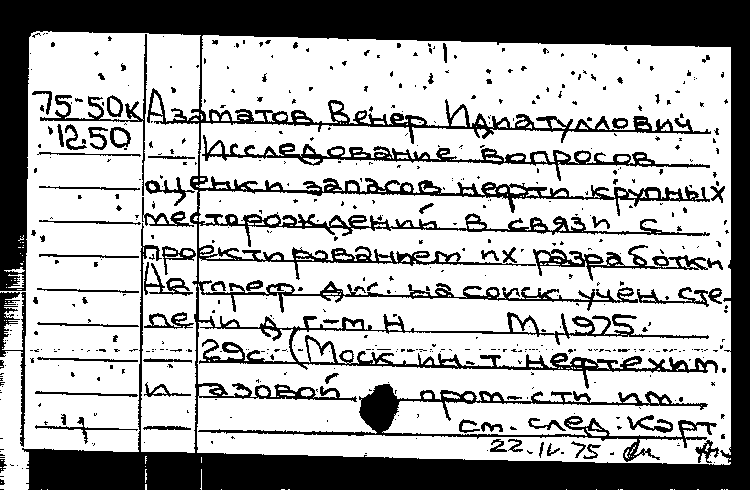 75-50к Азаматов, Венер Идиатуллович
12.50 Исследование вопросов
оценки запасов нефти крупных
месторождений в связи с
проектированием их разработки.
Автореф. дис. на соиск. учён. сте-
пени д. г.-м. н. М., 1975.
29с. (Моск. ин-т нефтехим.
и газовой пром-сти им.
см. след. карт
22.IV.75.